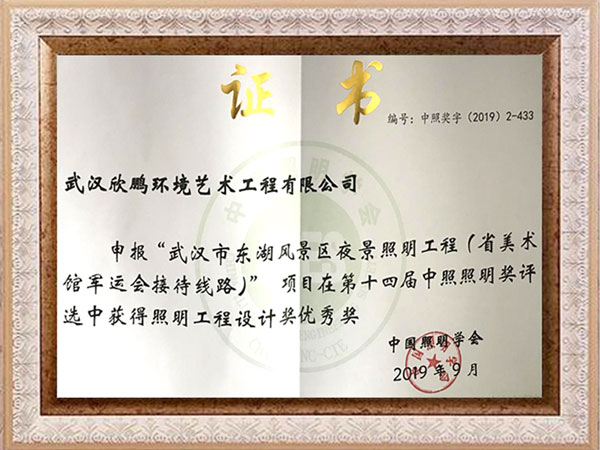 证 书
编号：中照奖字（2019）2-433
武汉欣鹏环境艺术工程有限公司
申报“武汉市东湖风景区夜景照明工程（省美术
馆军运会接待线路）” 项目在第十四届中照照明奖评
选中获得照明工程设计奖优秀奖
中国照明学会
2019 年 9 月